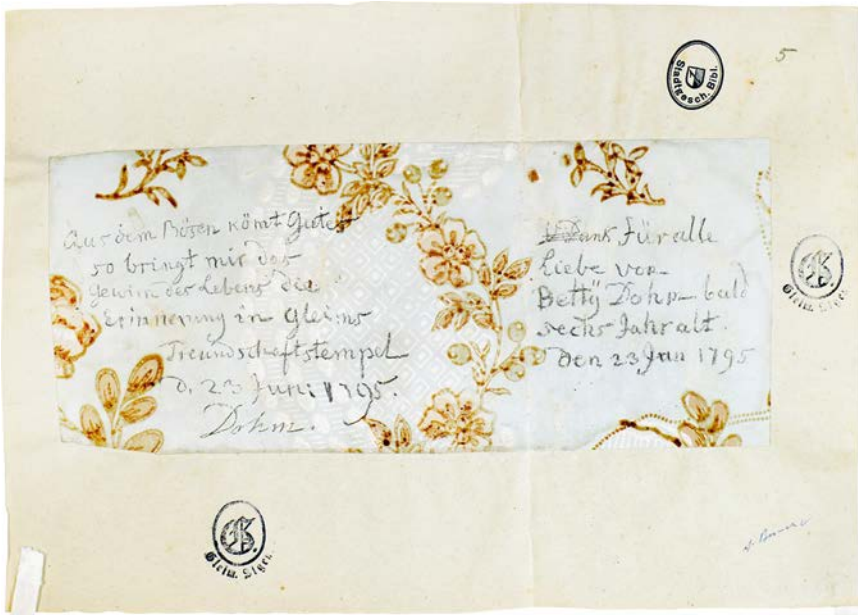 5
Stadtgesch. Bibl.
Aus dem Bösen kömt Gutes
so bringt mir das
Gewirr des Lebens die
Erinnerung in Gleims
Freundschaftstempel
D. 23 Juni 1795.
Dohm.
Dank für alle
Liebe von
Betty Dohm bald
sechs Jahr alt.
Den 23 Jun 1795
G.
Gleim. Stgen.
G.
Gleim. Stgen.